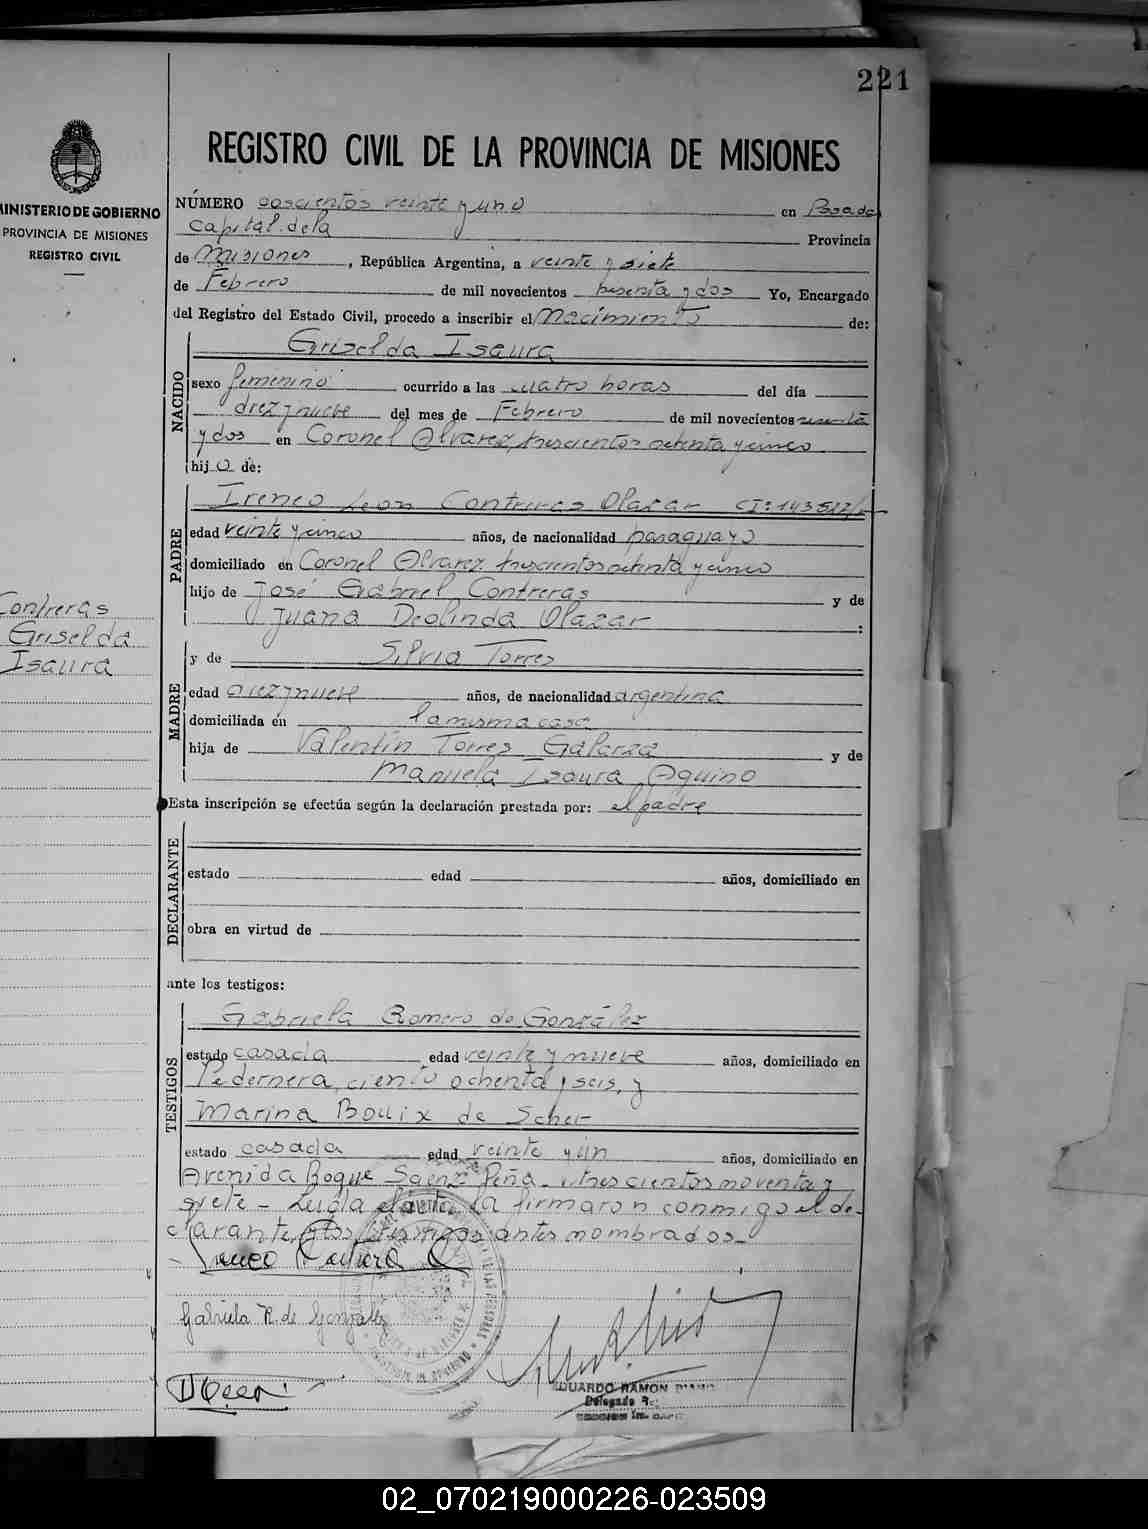 221
REGISTRO CIVIL DE LA PROVINCIA DE MISIONES
MINISTERIO DE GOBIERNO
PROVINCIA DE MISIONES
REGISTRO CIVIL
NÚMERO doscientos veinte y uno en Posadas
Capital de la Provincia
de Misiones, República Argentina, a veinte y siete
de Febrero de mil novecientos sesenta y dos Yo, Encargado
del Registro del Estado Civil, procedo a inscribir el Nacimiento de:
NACIDO
Griselda Isaura
sexo femenino ocurrido a las cuatro horas del día
diez y nueve del mes de Febrero de mil novecientos sesenta
y dos en Coronel Alvarez, trescientos ochenta y cinco
hijo de:
PADRE
Ireneo Leon Contreras Olazar CI:
edad veinte y cinco años, de nacionalidad paraguayo
domiciliado en Coronel Alvarez trescientos ochenta y cinco
hijo de José Gabriel Contreras y de
Juana Deolinda Olazar :
Contreras
Griselda
Isaura
MADRE
y de Silvia Torres
edad diez y nueve años, de nacionalidad argentina
domiciliada en la misma casa
hija de Valentín Torres Galarza y de
Manuela Isaura Aquino
Esta inscripción se efectúa según la declaración prestada por: el padre
DECLARANTE
estado edad años, domiciliado en
obra en virtud de
ante los testigos:
TESTIGOS
Gabriela Romero de González
estado casada edad veinte y nueve años, domiciliado en
Pedernera, ciento ochenta y seis, y
Marina Bouix de Scher
estado casada edad veinte y un años, domiciliado en
Avenida Roque Saenz Peña - trescientos noventa y
siete - Leída el acta, la firmaron conmigo el de-
clarante y los testigos antes nombrados -
Gabriela R. de González
EDUARDO RAMON
Delegado
02_070219000226-023509